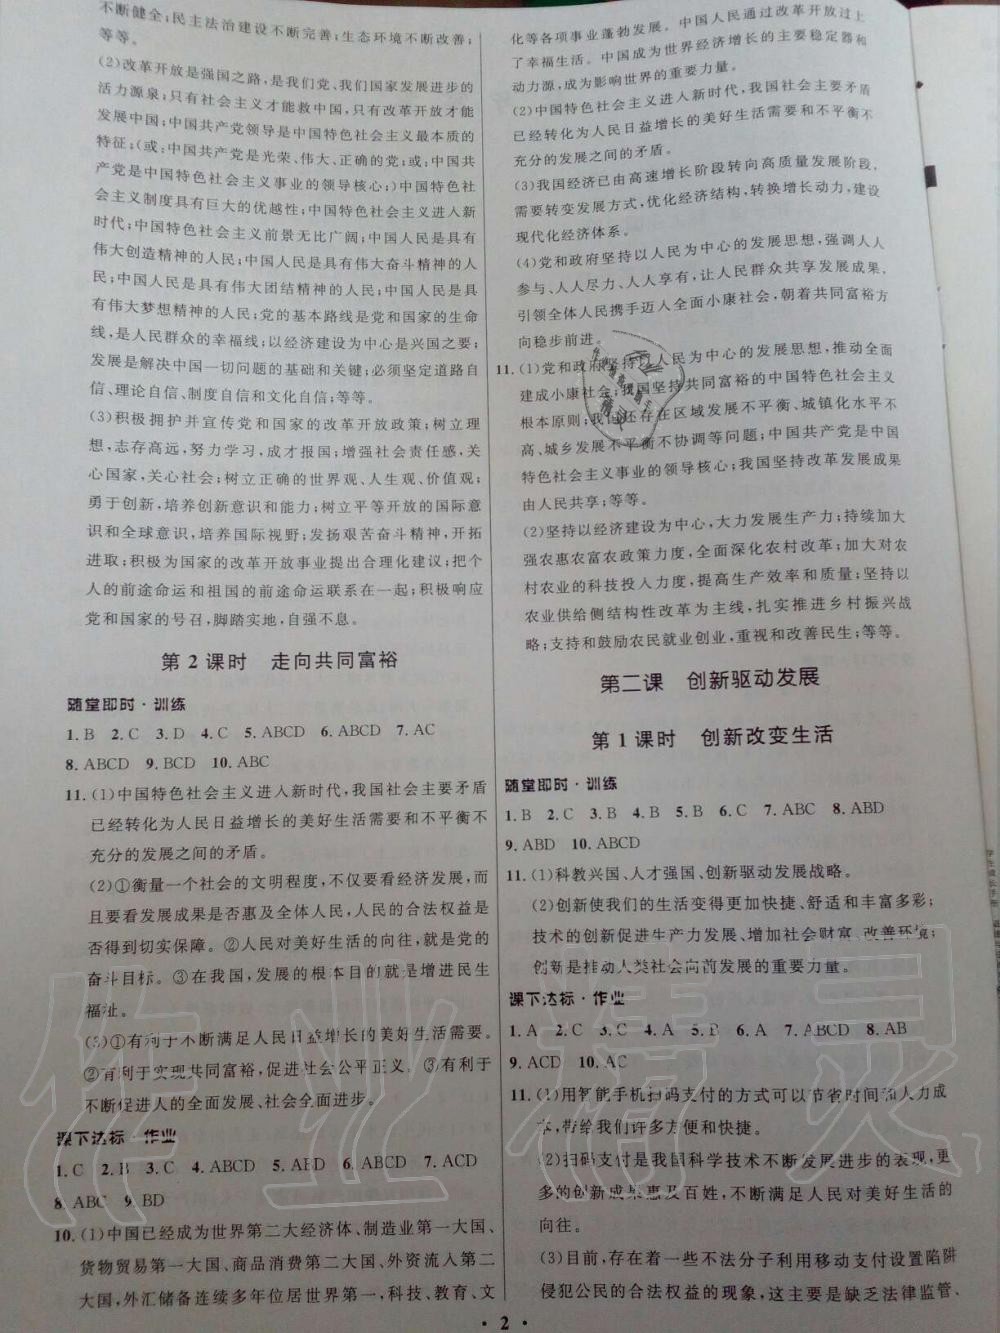 不断健全;民主法治建设不断完善;生态环境不断改善;
等等。
(2)改革开放是强国之路,是我们党、我们国家发展进步的
活力源泉;只有社会主义才能救中国,只有改革开放才能
发展中国;中国共产党领导是中国特色社会主义最本质的
特征;(或:中国共产党是光荣、伟大、正确的党;或:中国共
产党是中国特色社会主义事业的领导核心;)中国特色社
会主义制度具有巨大的优越性;中国特色社会主义进入新
时代;中国特色社会主义前景无比广阔;中国人民是具有
伟大创造精神的人民;中国人民是具有伟大奋斗精神的人
民;中国人民是具有伟大团结精神的人民;中国人民是具
有伟大梦想精神的人民;党的基本路线是党和国家的生命
线,是人民群众的幸福线;以经济建设为中心是兴国之要;
发展是解决中国一切问题的基础和关键;必须坚定道路自
信、理论自信、制度自信和文化自信;等等。
(3)积极拥护并宣传党和国家的改革开放政策;树立理
想,志存高远,努力学习,成才报国;增强社会责任感,关
心国家,关心社会;树立正确的世界观、人生观、价值观;
勇于创新,培养创新意识和能力;树立平等开放的国际意
识和全球意识,培养国际视野;发扬艰苦奋斗精神,开拓
进取;积极为国家的改革开放事业提出合理化建议;把个
人的前途命运和祖国的前途命运联系在一起;积极响应
党和国家的号召,脚踏实地,自强不息。
第2课时 走向共同富裕
随堂即时·训练
1.B 2.C 3.D 4.C 5.ABCD 6.ABCD 7.AC
8.ABCD 9.BCD 10.ABC
11.(1)中国特色社会主义进入新时代,我国社会主要矛盾
已经转化为人民日益增长的美好生活需要和不平衡不
充分的发展之间的矛盾。
(2)①衡量一个社会的文明程度,不仅要看经济发展,而
且要看发展成果是否惠及全体人民,人民的合法权益是
否得到切实保障。②人民对美好生活的向往,就是党的
奋斗目标。③在我国,发展的根本目的就是增进民生
福祉。
(3)①有利于不断满足人民日益增长的美好生活需要。
②有利于实现共同富裕,促进社会公平正义。③有利于
不断促进人的全面发展、社会全面进步。
课下达标·作业
1.C 2.B 3.C 4.ABCD 5.ABD 6.ABCD 7.ACD
8.ABC 9.BD
10.(1)中国已经成为世界第二大经济体、制造业第一大国、
货物贸易第一大国、商品消费第二大国、外资流入第二
大国,外汇储备连续多年位居世界第一,科技、教育、文
化等各项事业蓬勃发展。中国人民通过改革开放过上
了幸福生活。中国成为世界经济增长的主要稳定器和
动力源,成为影响世界的重要力量。
(2)中国特色社会主义进入新时代,我国社会主要矛盾
已经转化为人民日益增长的美好生活需要和不平衡不
充分的发展之间的矛盾。
(3)我国经济已由高速增长阶段转向高质量发展阶段,
需要转变发展方式,优化经济结构,转换增长动力,建设
现代化经济体系。
(4)党和政府坚持以人民为中心的发展思想,强调人人
参与、人人尽力、人人享有,让人民群众共享发展成果,
引领全体人民携手迈入全面小康社会,朝着共同富裕方
向稳步前进。
11.(1)党和政府坚持以人民为中心的发展思想,推动全面
建成小康社会;我国坚持共同富裕的中国特色社会主义
根本原则;我国还存在区域发展不平衡、城镇化水平不
高、城乡发展不平衡不协调等问题;中国共产党是中国
特色社会主义事业的领导核心;我国坚持改革发展成果
由人民共享;等等。
(2)坚持以经济建设为中心,大力发展生产力;持续加大
强农惠农富农政策力度,全面深化农村改革;加大对农
村农业的科技投入力度,提高生产效率和质量;坚持以
农业供给侧结构性改革为主线,扎实推进乡村振兴战
略;支持和鼓励农民就业创业,重视和改善民生;等等。
第二课 创新驱动发展
第1课时 创新改变生活
随堂即时·训练
1.B 2.C 3.B 4.B 5.B 6.C 7.ABC 8.ABD
9.ABD 10.ABCD
11.(1)科教兴国、人才强国、创新驱动发展战略。
(2)创新使我们的生活变得更加快捷、舒适和丰富多彩;
技术的创新促进生产力发展、增加社会财富、改善环境;
创新是推动人类社会向前发展的重要力量。
课下达标·作业
1.A 2.C 3.C 4.A 5.B 6.A 7.ABCD 8.AB
9.ACD 10.AC
11.(1)用智能手机扫码支付的方式可以节省时间和人力成
本,带给我们许多方便和快捷。
(2)扫码支付是我国科学技术不断发展进步的表现,更
多的创新成果惠及百姓,不断满足人民对美好生活的
向往。
(3)目前,存在着一些不法分子利用移动支付设置陷阱
侵犯公民的合法权益的现象,这主要是缺乏法律监管、
·2·
作业精灵